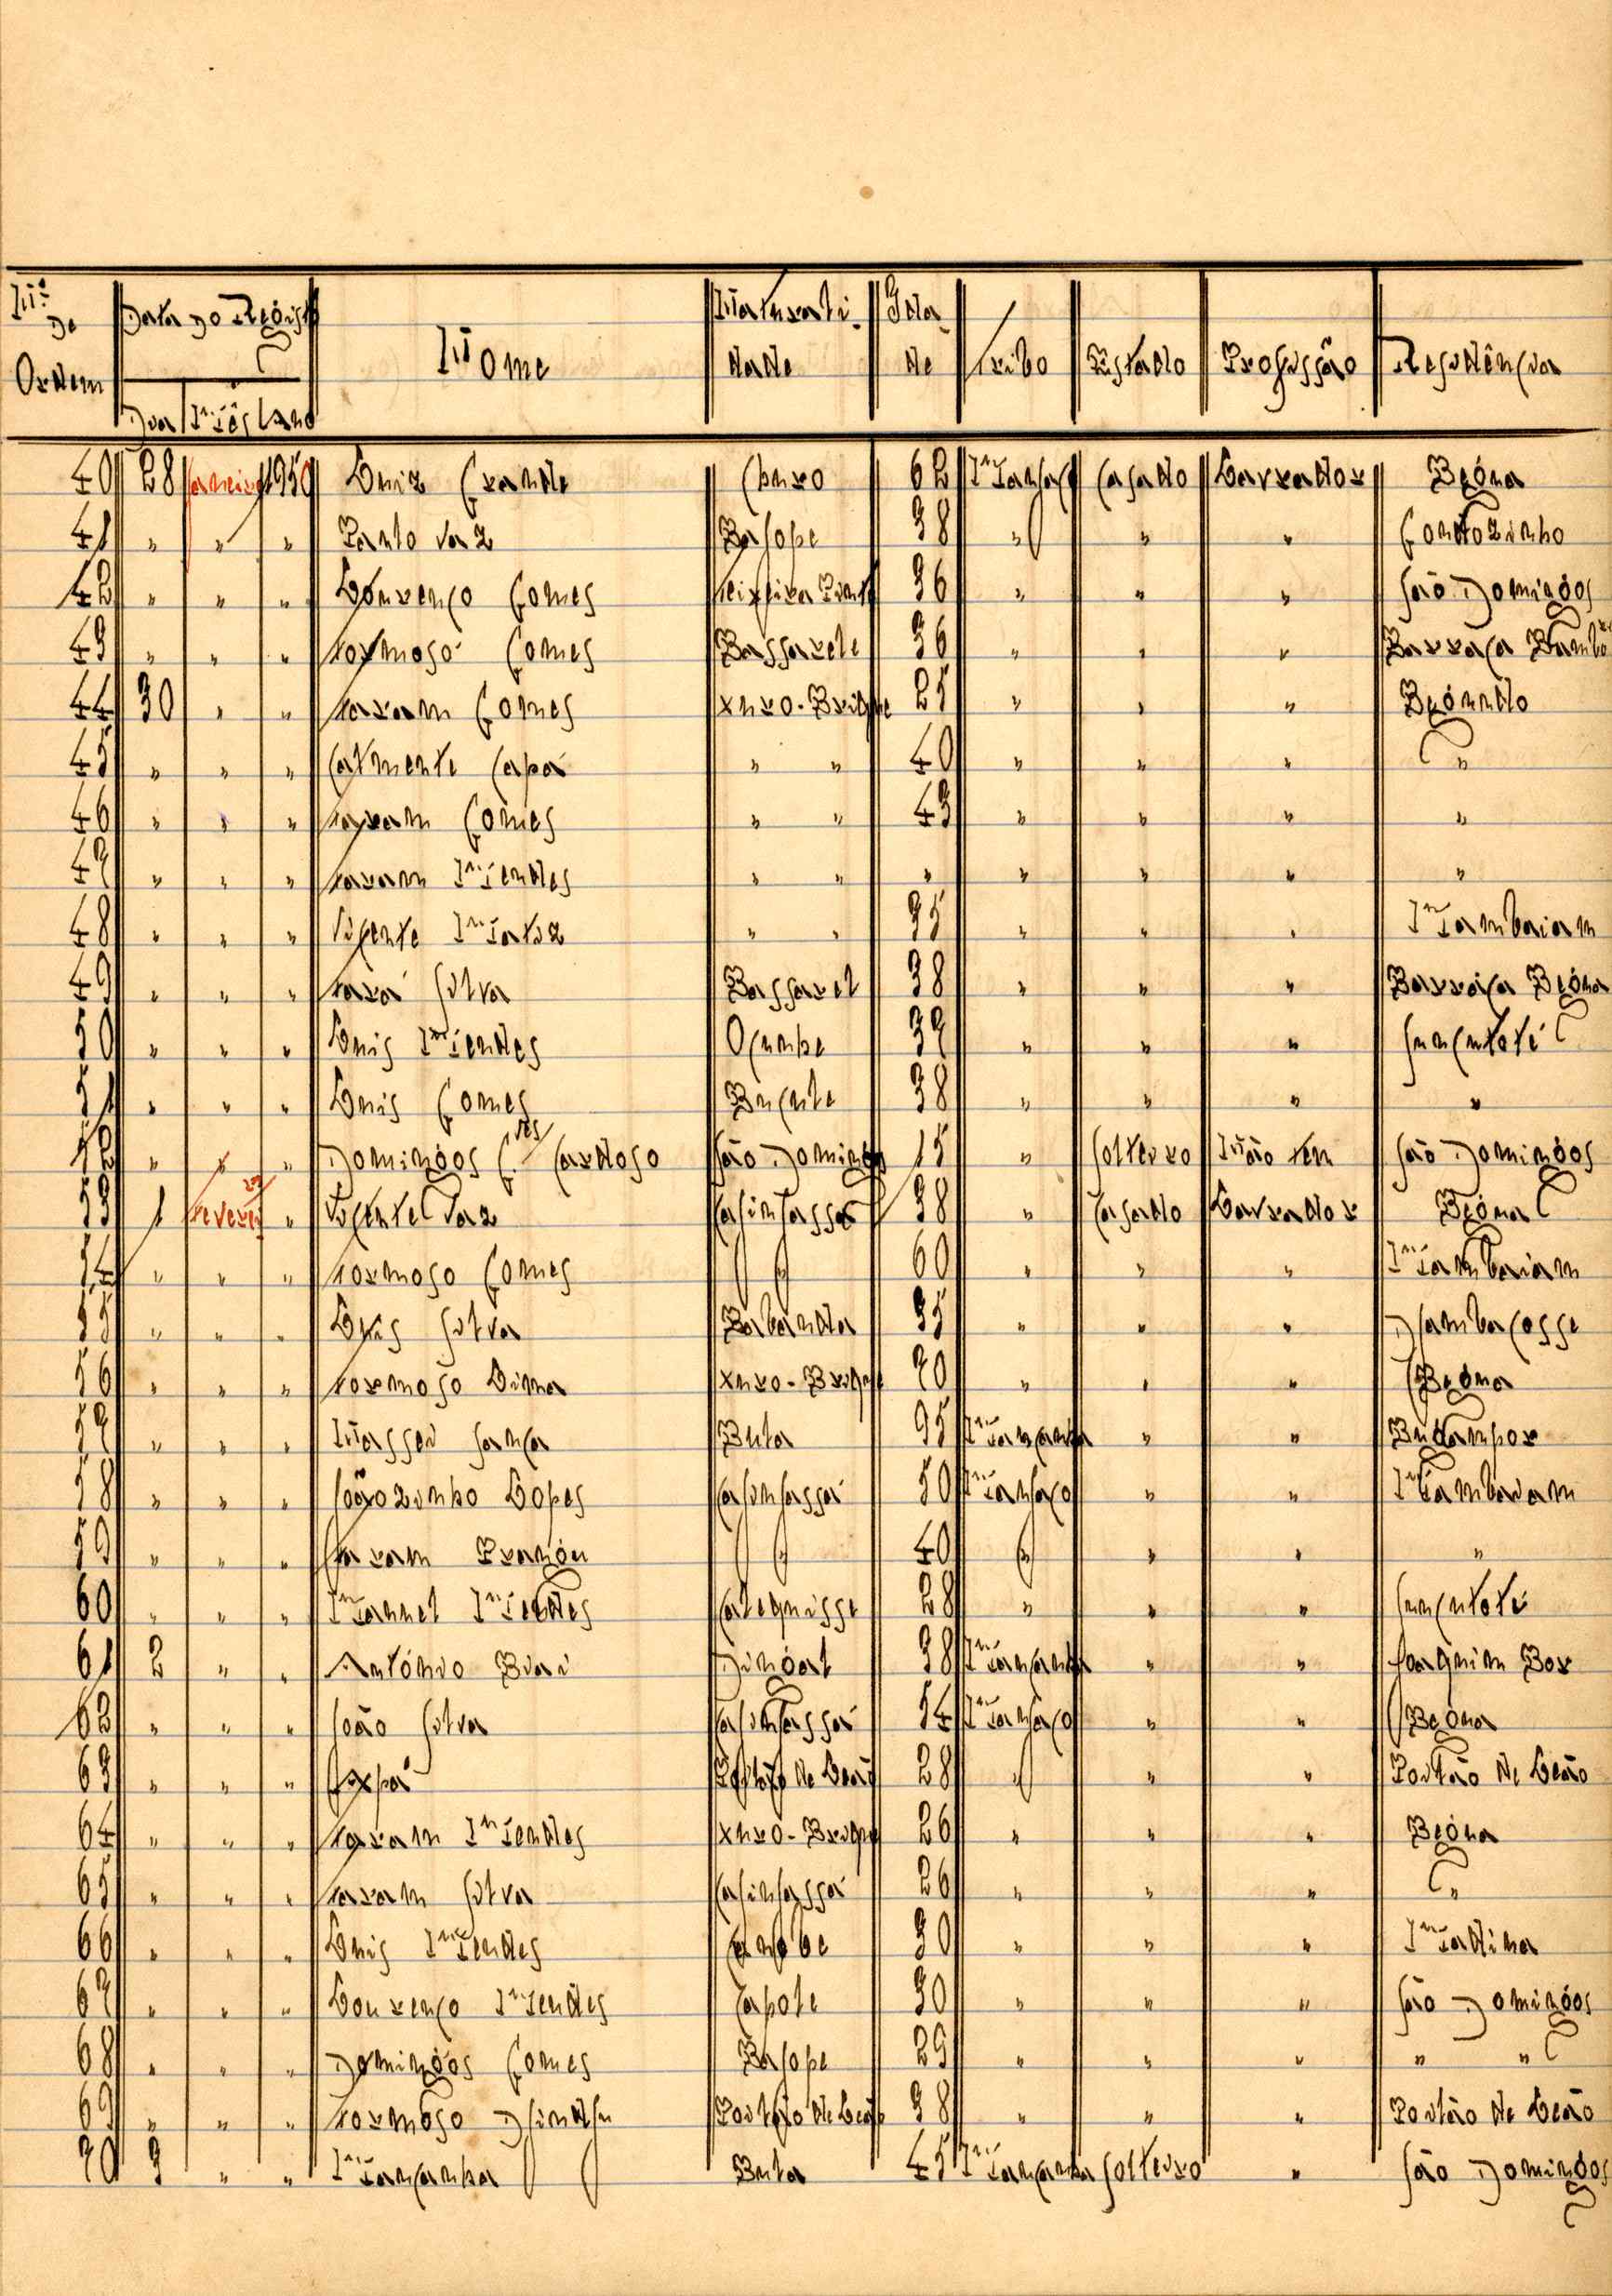 Nº de Ordem Data do Regist Nome Naturali- dade Ida- de Tribo Estado Profissão Residência
Dia Mês Ano
40 28 Janeiro 1950 Luiz Grande Churo 62 Manjaco Casado Lavrador Begôna
41 " " " Paulo Vaz Basope 38 " " " Gomtozinho
42 " " " Lourenço Gomes 36 " " " São Domingos
43 " " " Formoso Gomes Bassarele 36 " " " Barraca Bambo
44 30 " " Naram Gomes Xuro-Brique 25 " " "
45 " " " Calmente Capá " " 40 " " " "
46 " " " Naram Gomes " " 43 " " " "
47 " " " Naram Mendes " " " " " " "
48 " " " Vicente Matiz " " 35 " " " Mambaiam
49 " " " Silva Bassarel 38 " " " Barraca Begôna
50 " " " Luis Mendes Ocunpe 37 " " " Suncutoté
51 " " " Luis Gomes Bucule 38 " " " "
52 " " " Domingos G.es Cardoso São Domingos 15 " Solteiro Não tem São Domingos
53 1 Fevereiro " Vicente Vaz Casinhassá 38 " Casado Lavrador Begôna
54 " " " Formoso Gomes " 60 " " " Mambaiam
55 " " " Silva Babanda 35 " " " Djambacosse
56 " " " Formoso Lima Xuro-Brique 70 " " " Begôna
57 " " " Sanca Bula 35 Mancanha " "
58 " " " Joãozinho Lopes Casinhassá 50 Manjaco " " Mambaiam
59 " " " " 40 " " " "
60 " " " Manuel Mendes Calequisse 28 " " " Suncutoté
61 2 " " António Biai Dingal 38 Mancanha " " Joaquim Bor
62 " " " João Silva Casinhassá 54 Manjaco " " Begôna
63 " " " Portão de Leão 28 " " " Portão de Leão
64 " " " Naram Mendes Xuro-Brique 26 " " " Begôna
65 " " " Naram Silva Casinhassá 26 " " " "
66 " " " Luis Mendes 30 " " " Madina
67 " " " Lourenço Mendes Capole 30 " " " São Domingos
68 " " " Domingos Gomes Basope 29 " " " " "
69 " " " Formoso Djindju Portão de Leão 38 " " " Portão de Leão
70 3 " " Mancanha Bula 45 Mancanha Solteiro " São Domingos